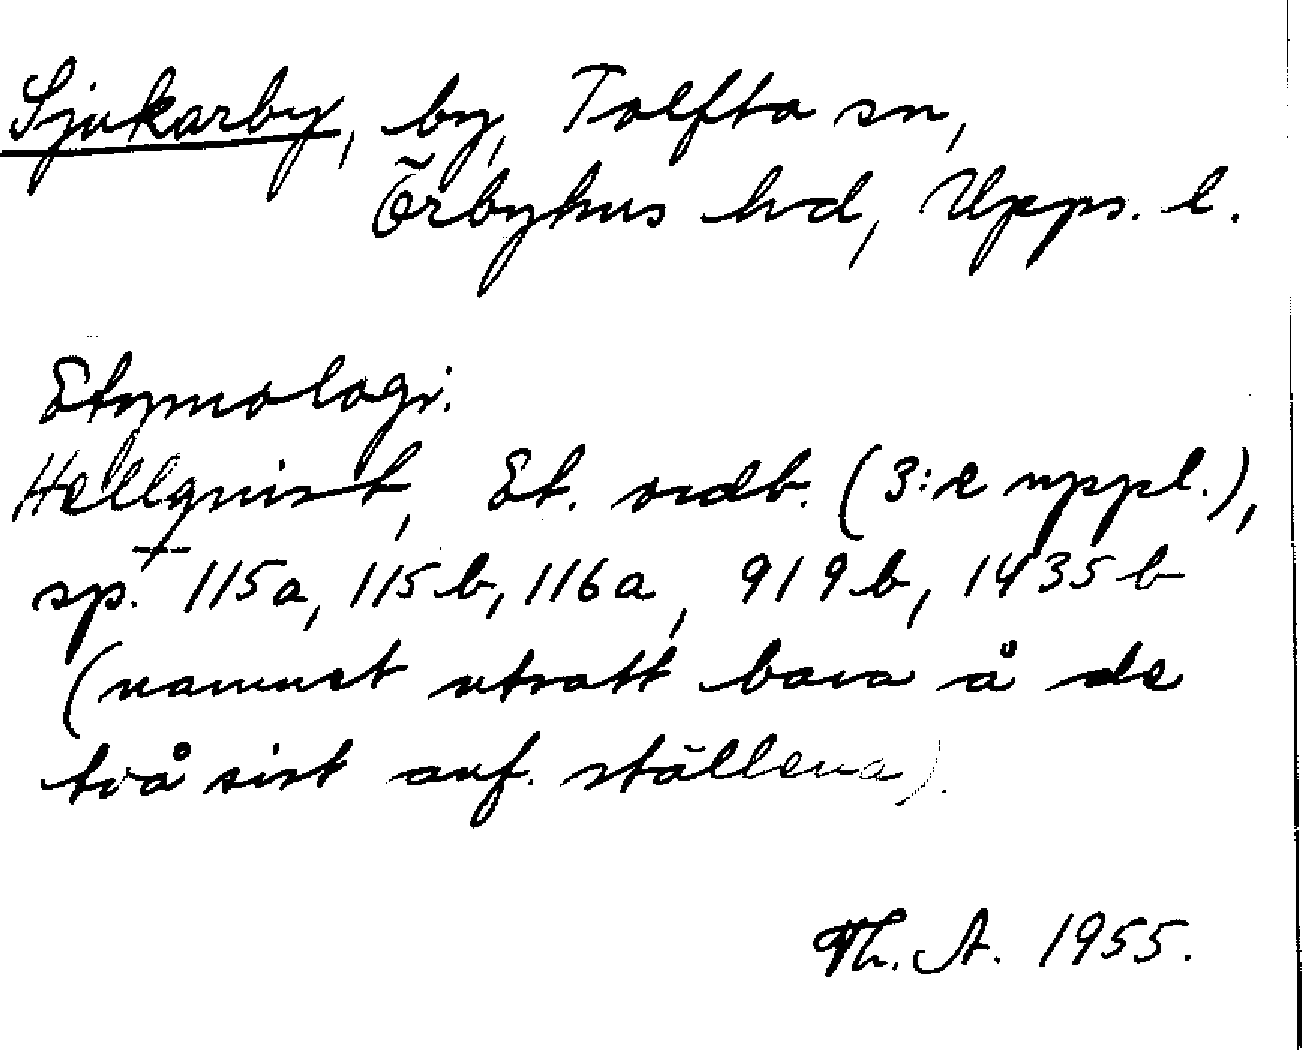 Sjukarby, by, Tolfta sn,
Örbyhus hd, Upps. l.
Etymologi.
Hellquist, Et. ordb. (3:e uppl.),
sp. 115a, 115b, 116a, 919b, 1435b
(namnet utsatt bara å de
två sist anf. ställena).
Th. A. 1955.